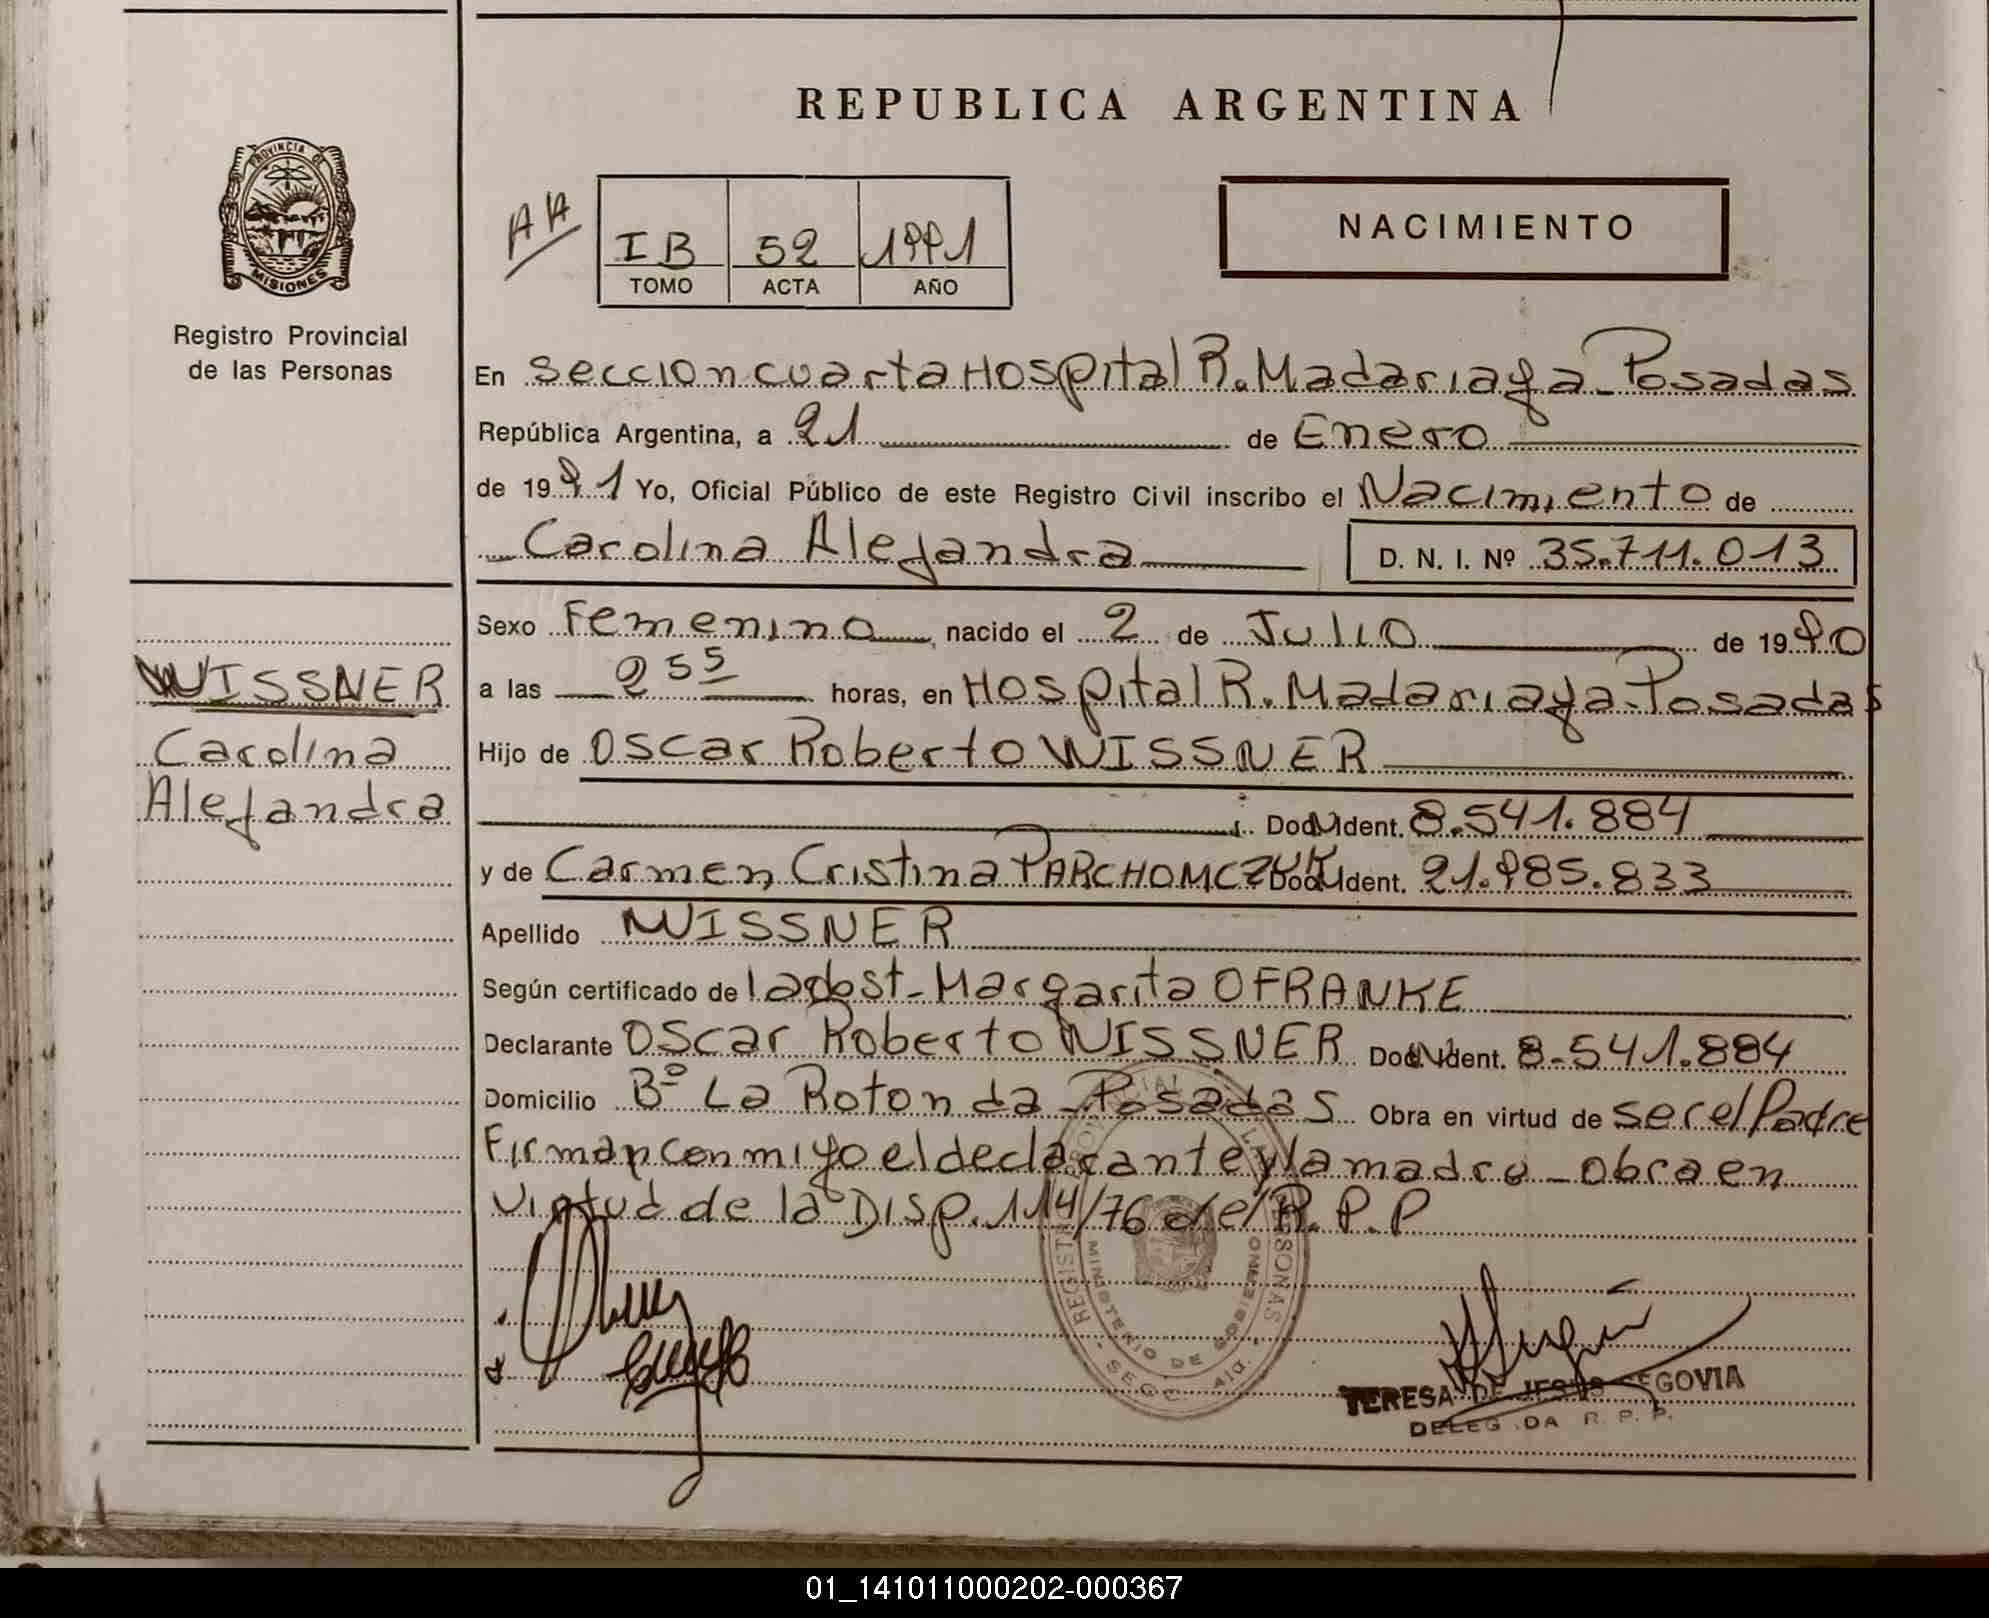 REPUBLICA ARGENTINA
PROVINCIA DE
MISIONES
Registro Provincial
de las Personas
AA
IB 52 1991
TOMO ACTA AÑO
NACIMIENTO
En Seccion cuarta Hospital R. Madariaga - Posadas
República Argentina, a 21 de Enero
de 1991 Yo, Oficial Público de este Registro Civil inscribo el Nacimiento de
Carolina Alejandra D. N. I. Nº 35.711.013
Sexo Femenino, nacido el 2 de Julio de 1990
a las 2 55 horas, en Hospital R. Madariaga - Posadas
Hijo de Oscar Roberto WISSNER
Doc. Ident. 8.541.884
y de Carmen Cristina PARCHOMCZUK Doc. Ident. 21.985.833
Apellido WISSNER
Según certificado de la obst - Margarita O FRANKE
Declarante Oscar Roberto WISSNER Doc. Ident. 8.541.884
Domicilio Bº La Rotonda - Posadas Obra en virtud de ser el Padre
Firman conmigo el declarante y la madre - obra en
virtud de la Disp. 114/76 del R.P.P
WISSNER
Carolina
Alejandra
REGISTRO PROVINCIAL DE LAS PERSONAS
MINISTERIO DE GOBIERNO
TERESA DE JESUS SEGOVIA
DELEGADA R. P. P.
01_141011000202-000367